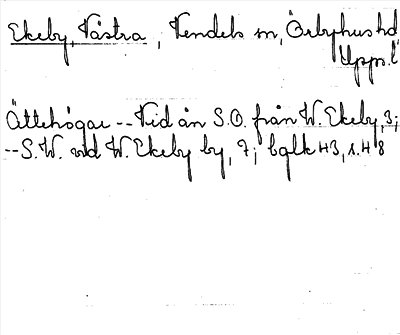 Ekeby, Västra, Vendels sn, Örbyhus hd
Upps. l
Ättehögar -- Vid ån S.O. från W. Ekeby, 3;
-- S.W. vid W. Ekeby by, 7; bqlk 43, s. 48